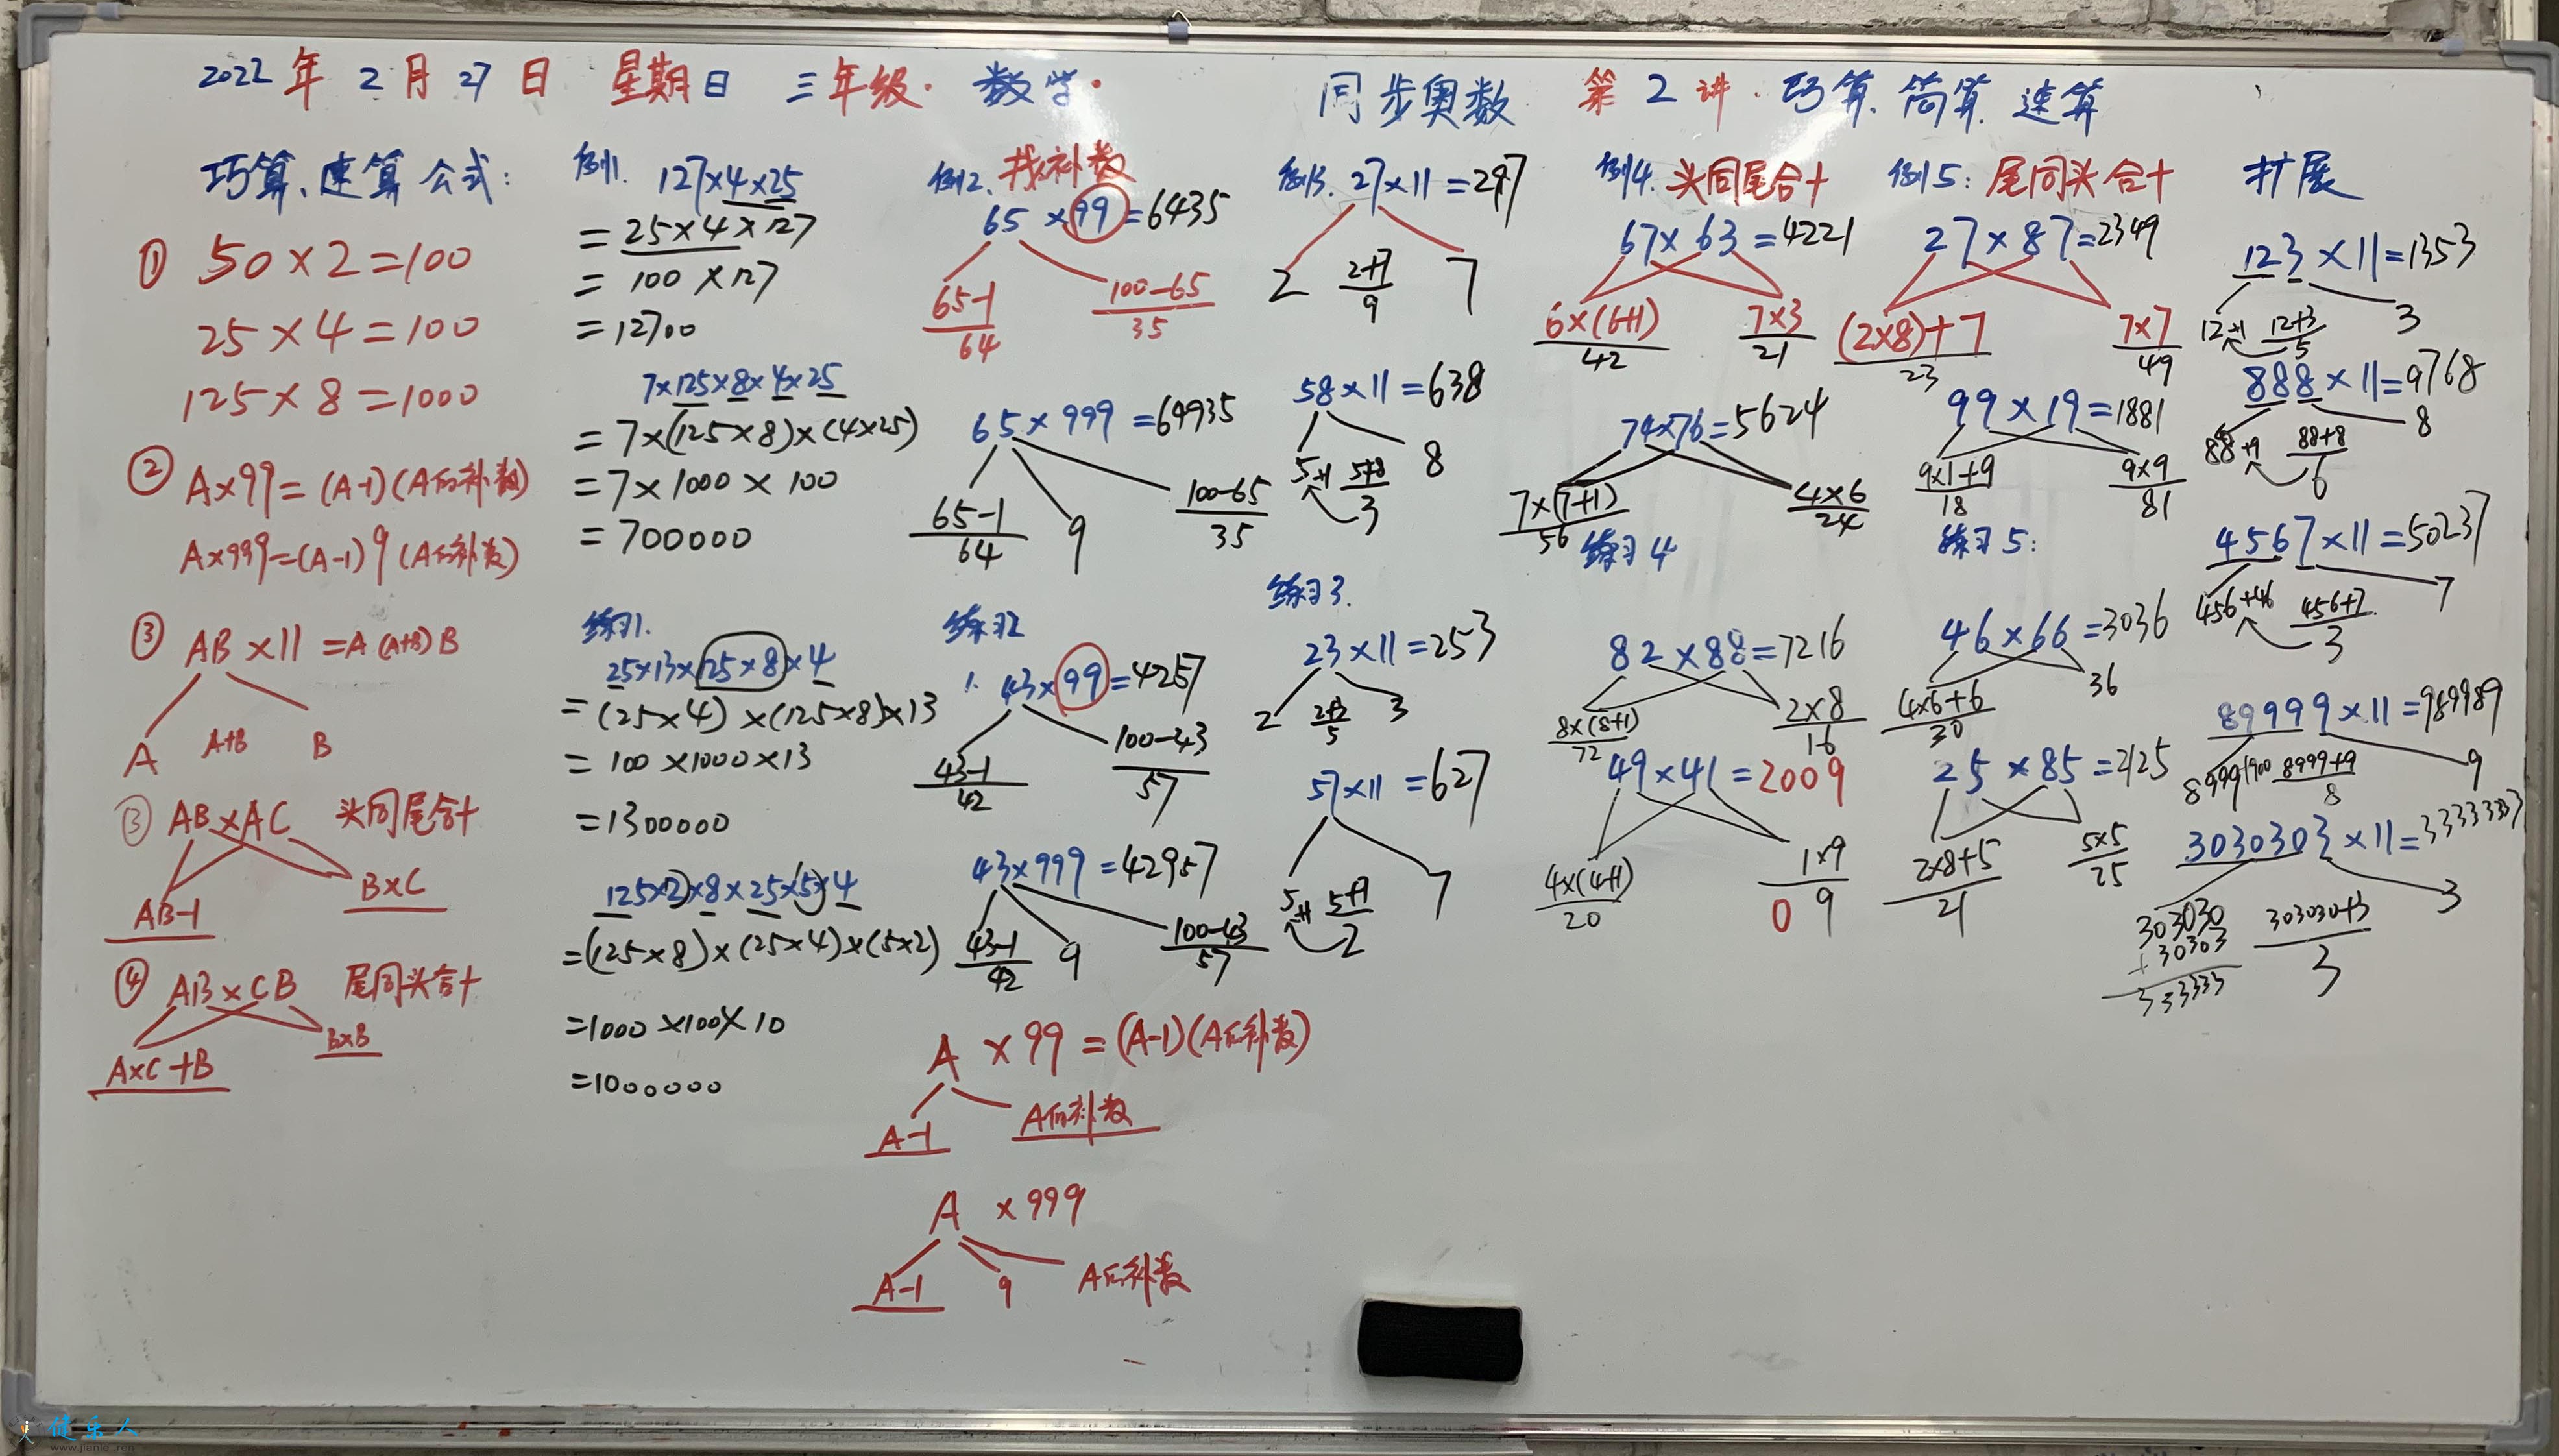 2022年2月27日 星期日 三年级·数学· 同步奥数 第2讲·巧算.简算.速算
巧算、速算公式：
① 50×2=100
25×4=100
125×8=1000
② A×99=(A-1)(A的补数)
A×999=(A-1)9(A的补数)
③ AB×11=A(A+B)B
A A+B B
③ AB×AC 头同尾合十
AB-1 B×C
④ AB×CB 尾同头合十
A×C+B B×B
例1. 127×4×25
=25×4×127
=100×127
=12700
7×125×8×4×25
=7×(125×8)×(4×25)
=7×1000×100
=700000
练习1.
25×13×125×8×4
=(25×4)×(125×8)×13
=100×1000×13
=1300000
125×2×8×25×5×4
=(125×8)×(25×4)×(5×2)
=1000×100×10
=1000000
例2. 找补数
65×99=6435
65-1 100-65
64 35
65×999=64935
65-1 9 100-65
64 35
练习2
1. 43×99=4257
43-1 100-43
42 57
43×999=42957
43-1 9 100-43
42 57
A×99=(A-1)(A的补数)
A-1 A的补数
A×999
A-1 9 A的补数
例3. 27×11=297
2 2+7 7
9
58×11=638
5+1 5+8 8
3
练习3.
23×11=253
2 2+3 3
5
57×11=627
5+1 5+7 7
2
例4. 头同尾合十
67×63=4221
6×(6+1) 7×3
42 21
74×76=5624
7×(7+1) 4×6
56 24
练习4
82×88=7216
8×(8+1) 2×8
72 16
49×41=2009
4×(4+1) 1×9
20 09
例5: 尾同头合十
27×87=2349
(2×8)+7 7×7
23 49
99×19=1881
9×1+9 9×9
18 81
练习5:
46×66=3036
4×6+6 36
30
25×85=2125
2×8+5 5×5
21 25
扩展
123×11=1353
12+1 12+3 3
5
888×11=9768
88+9 88+8 8
6
4567×11=50237
456+46 456+7 7
3
89999×11=989989
8999+900 8999+9 9
8
3030303×11=33333333
303030 303030+3 3
+30303 3
333333
健乐人
www.jianle.ren